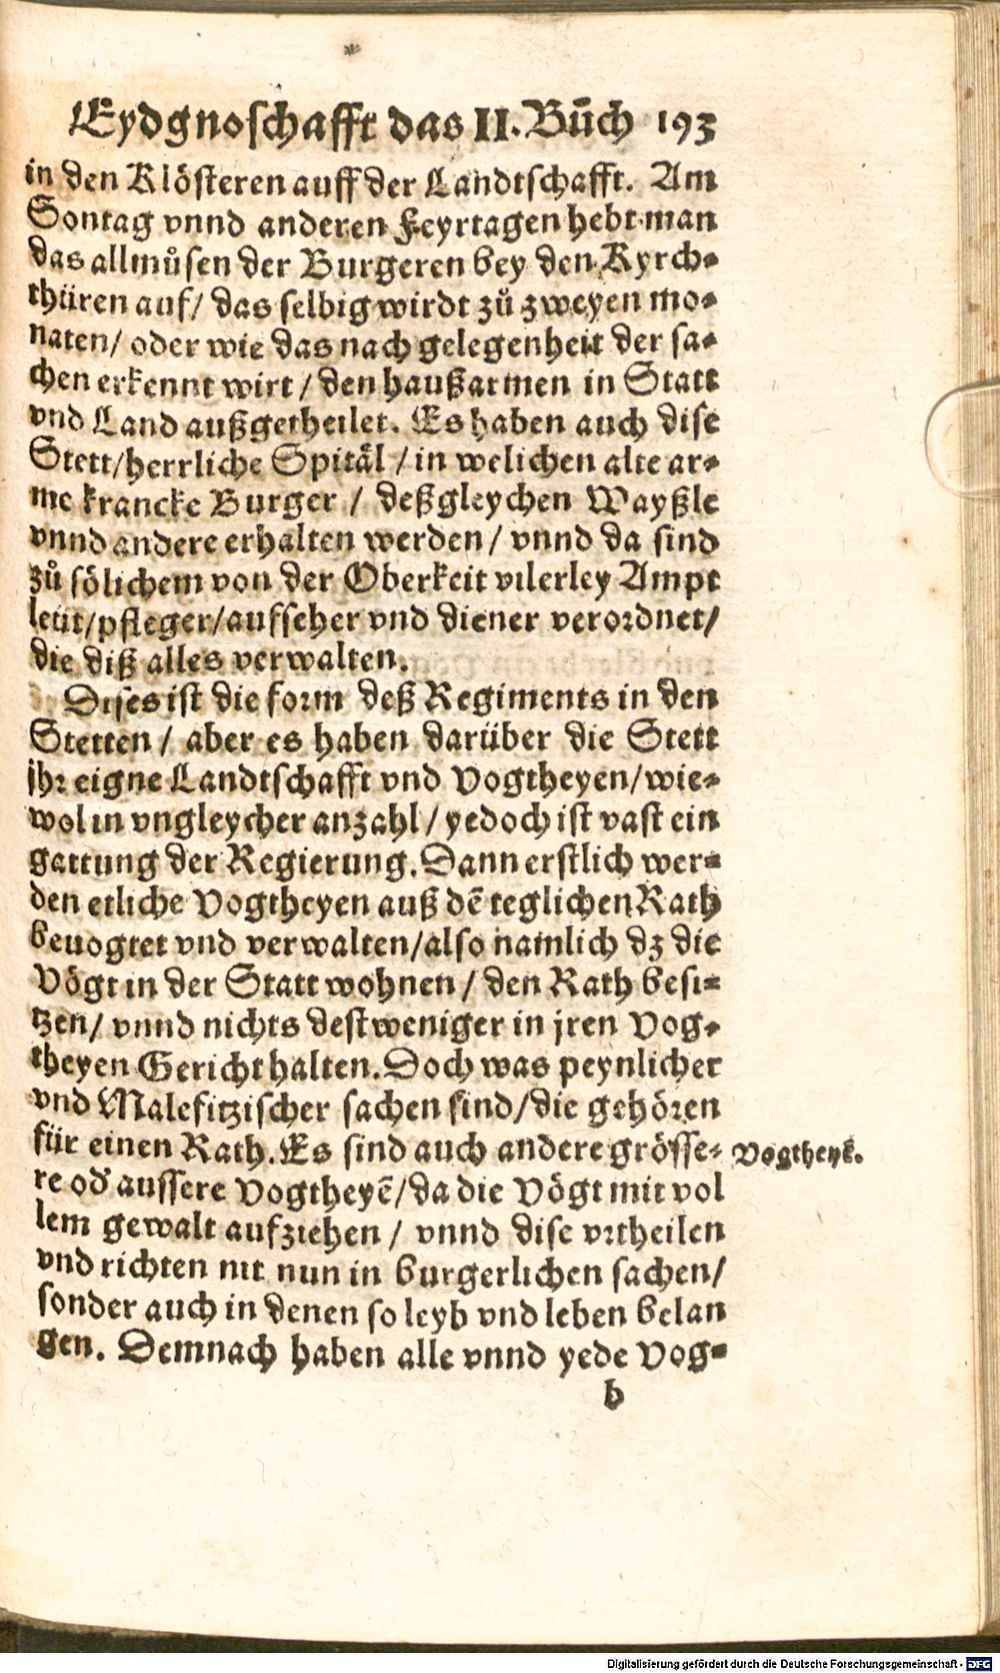 Eydgnoschafft das II. Bůch 193
in den Klösteren auff der Landtschafft. Am
Sontag vnnd anderen Feyrtagen hebt man
das allmůsen der Burgeren bey den Kyrch-
thüren auf/ das selbig wirdt zů zweyen mo-
naten/ oder wie das nach gelegenheit der sa-
chen erkennt wirt / den haußarmen in Statt
vnd Land außgetheilet. Es haben auch dise
Stett/herrliche Spitäl / in welichen alte ar-
me krancke Burger / deßgleychen Wayßle
vnnd andere erhalten werden/ vnnd da sind
zů sölichem von der Oberkeit vilerley Ampt
leüt/pfleger/aufseher vnd diener verordnet/
die diß alles verwalten.
Dises ist die form deß Regiments in den
Stetten / aber es haben darüber die Stett
jhr eigne Landtschafft vnd Vogtheyen/wie-
wol in vngleycher anzahl/ yedoch ist vast ein
gattung der Regierung. Dann erstlich wer-
den etliche Vogtheyen auß dē teglichen Rath
beuogtet vnd verwalten/also namlich dz die
Vögt in der Statt wohnen / den Rath besi-
tzen/ vnnd nichts destweniger in jren Vog-
theyen Gericht halten. Doch was peynlicher
vnd Malefitzischer sachen sind/die gehören
für einen Rath. Es sind auch andere grösse-
Vogtheyē.
re od' aussere Vogtheyē/da die Vögt mit vol
lem gewalt aufziehen / vnnd dise vrtheilen
vnd richten nit nun in burgerlichen sachen/
sonder auch in denen so leyb vnd leben belan
gen. Demnach haben alle vnnd yede Vog-
b
Digitalisierung gefördert durch die Deutsche Forschungsgemeinschaft - DFG